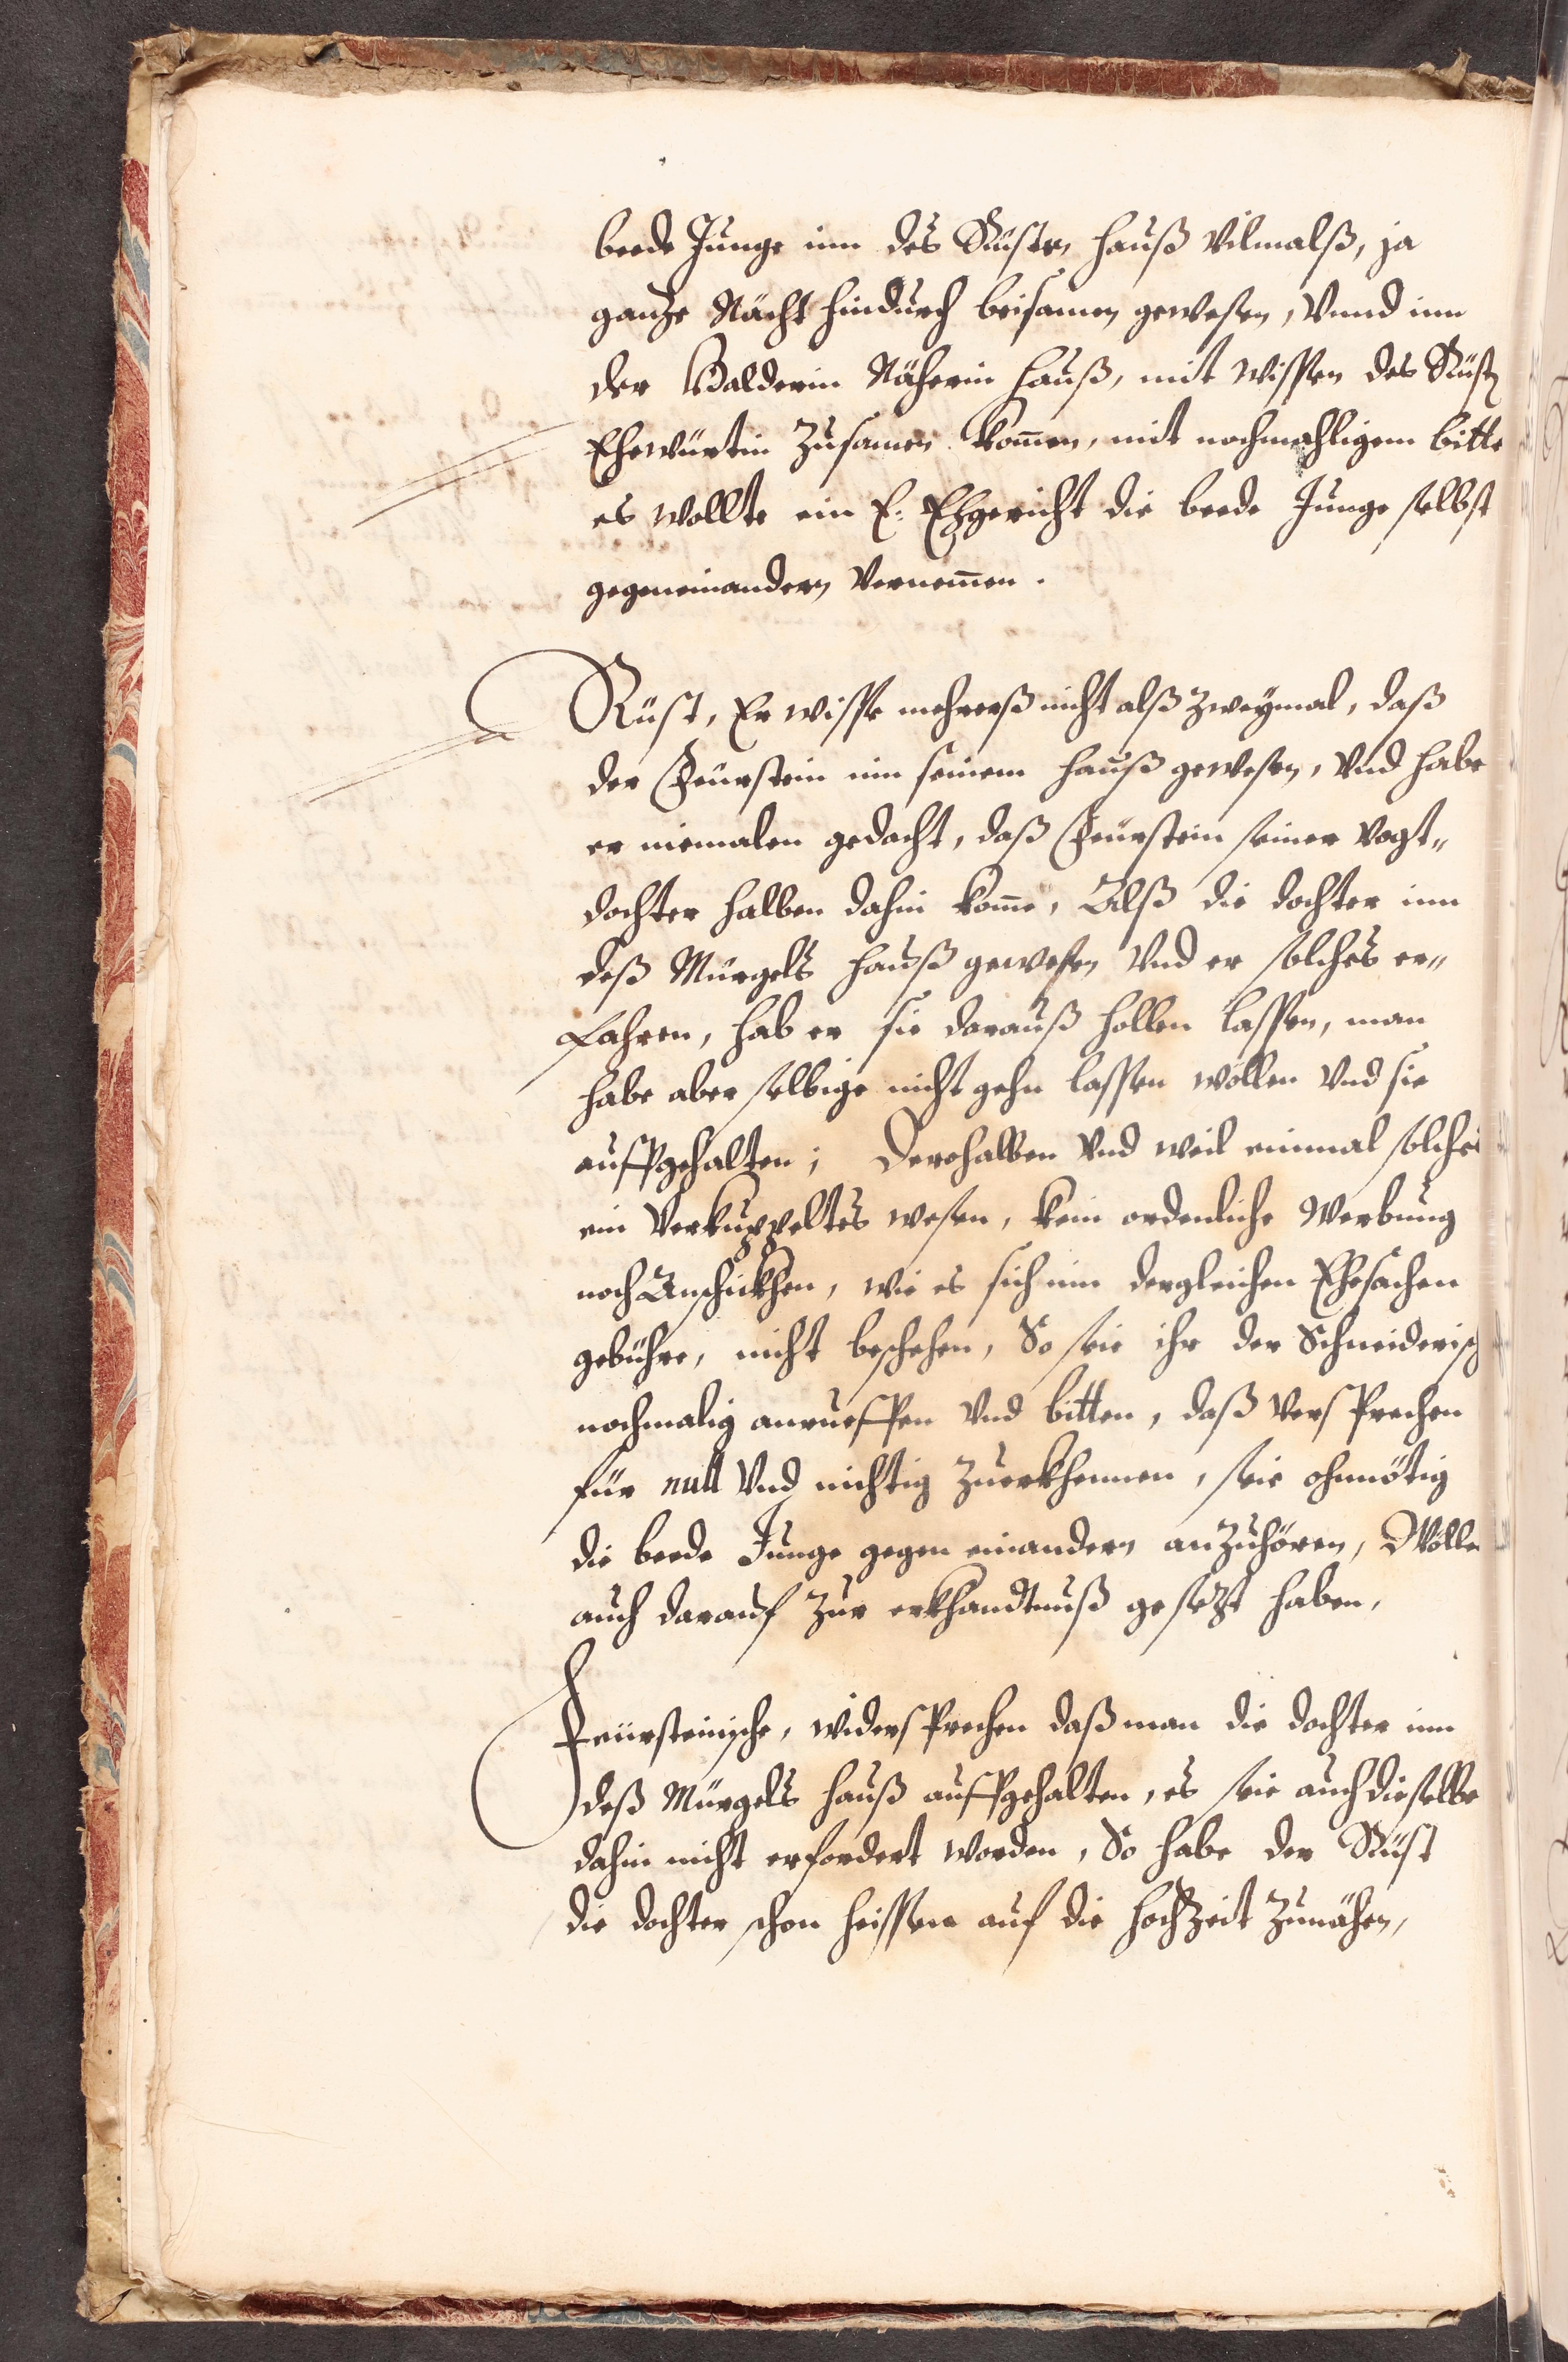 beede Junge inn des Rüsten hauß vilmalß, ja
ganze Nächt hindurch beisamen gewesen, vnnd inn
der Balderin Näherin hauß, mit wissen des Rüsten
Ehewürtin zusamen komen, mit nochmahligem bitte
es wollte ein E: Ehgericht die beede Junge selbst
gegeneinandern vernemen.
Rüst, Er wisse mehrerß nicht alß zweymal, daß
der Feürstein inn seinem hauß gewesen, vnd habe
er niemalen gedacht, daß Feürstein seiner vogt„
dochter halben dahin kome, Alß die dochter inn
deß Mürgels hauß gewesen vnd er solches er„
fahren, hab er sie darauß hollen lassen, man
habe aber selbige nicht gehn lassen wöllen vnd sie
auffgehalten; Derohalben vnd weil einmal solches
ein verkuppeltes wesen, kein ordenliche Werbung
noch Anschickhen, wie es sich inn dergleichen Ehesachen
gebühre, nicht beschehen, So seie ihr der Schneiderisch
nochmalig anrueffen vnd bitten, daß versprechen
für null vnd nichtig zuerkhennen, seie ohnnötig
die beede Junge gegen einandern anzuhören, Wölle
auch darauf zur erkhandtnuß gesezt haben,
Feürsteinische, widersprechen daß man die dochter inn
deß Mürgels hauß auffgehalten, es seie auch dieselbe
dahin nicht erfordert worden, So habe der Rüst
die dochter schon heissen auf die hochzeit zunähen,